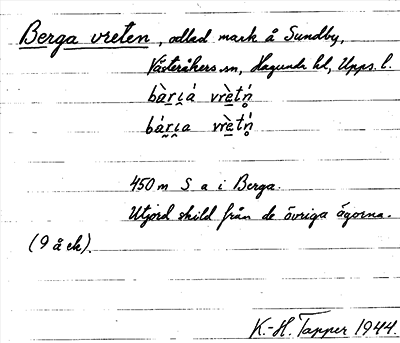 Berga vreten, odlad mark å Sundby,
Västeråkers sn, Hagunda hd, Upps. l.
bàri̯á vrètń̥
bári̯a vrètń̥
450 m S a i Berga.
Utjord skild från de övriga ägorna.
(9 å ek).
K.-H. Tapper 1944.